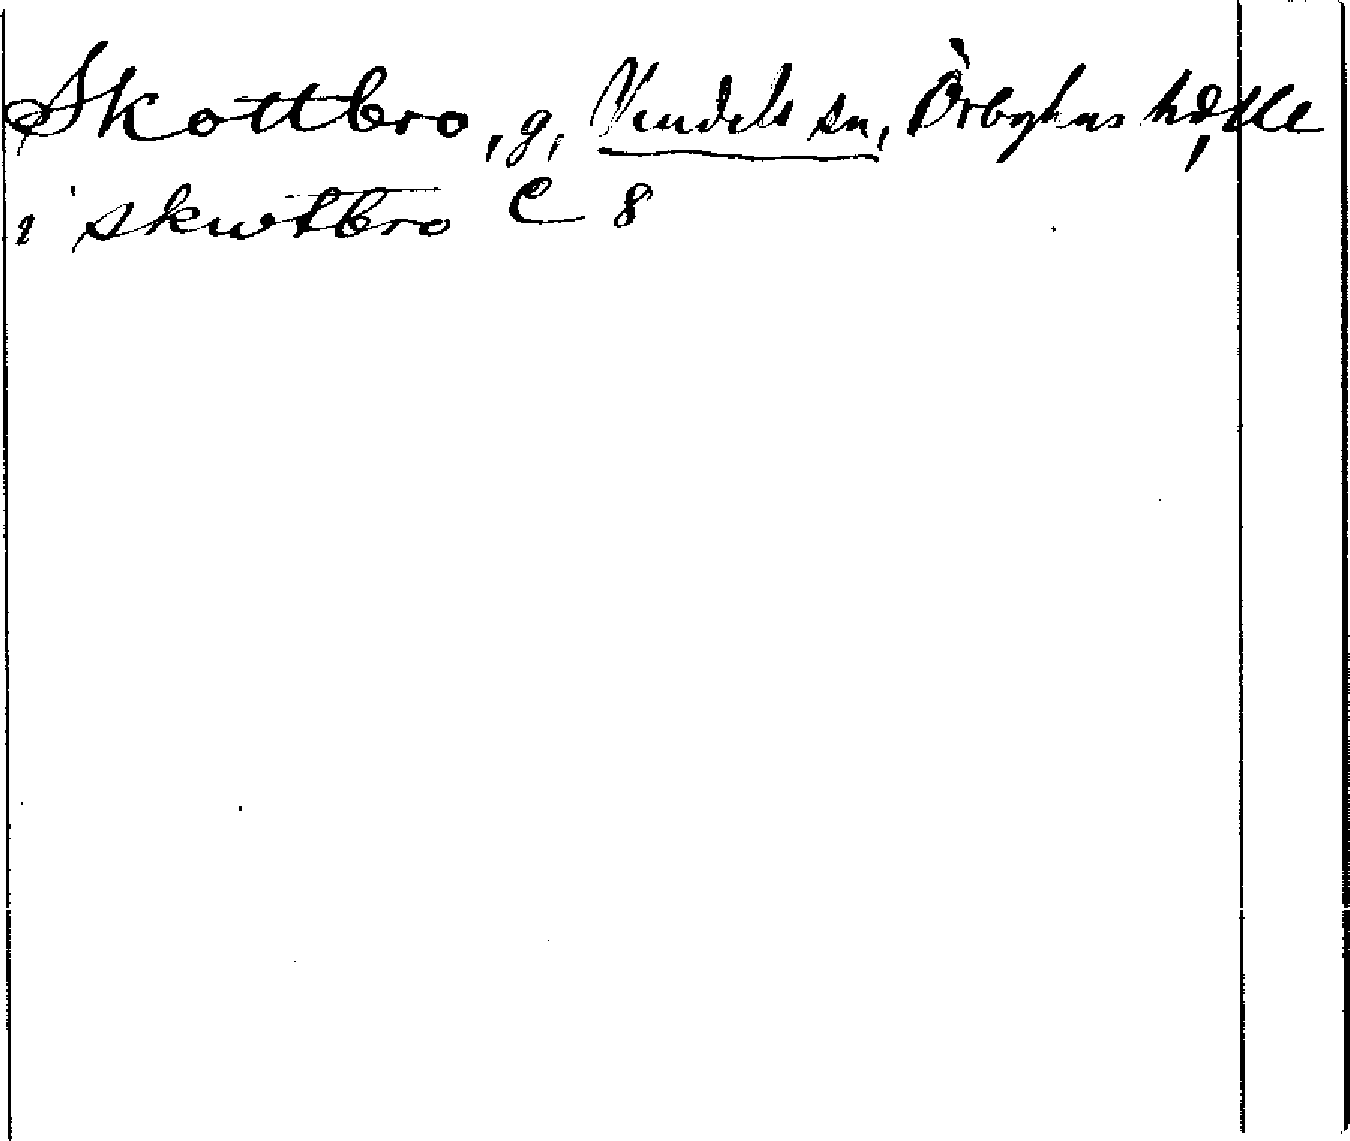 Skottbro, g, Vendels sn, Örbyhus hd, Ule
i skwtbro C 8